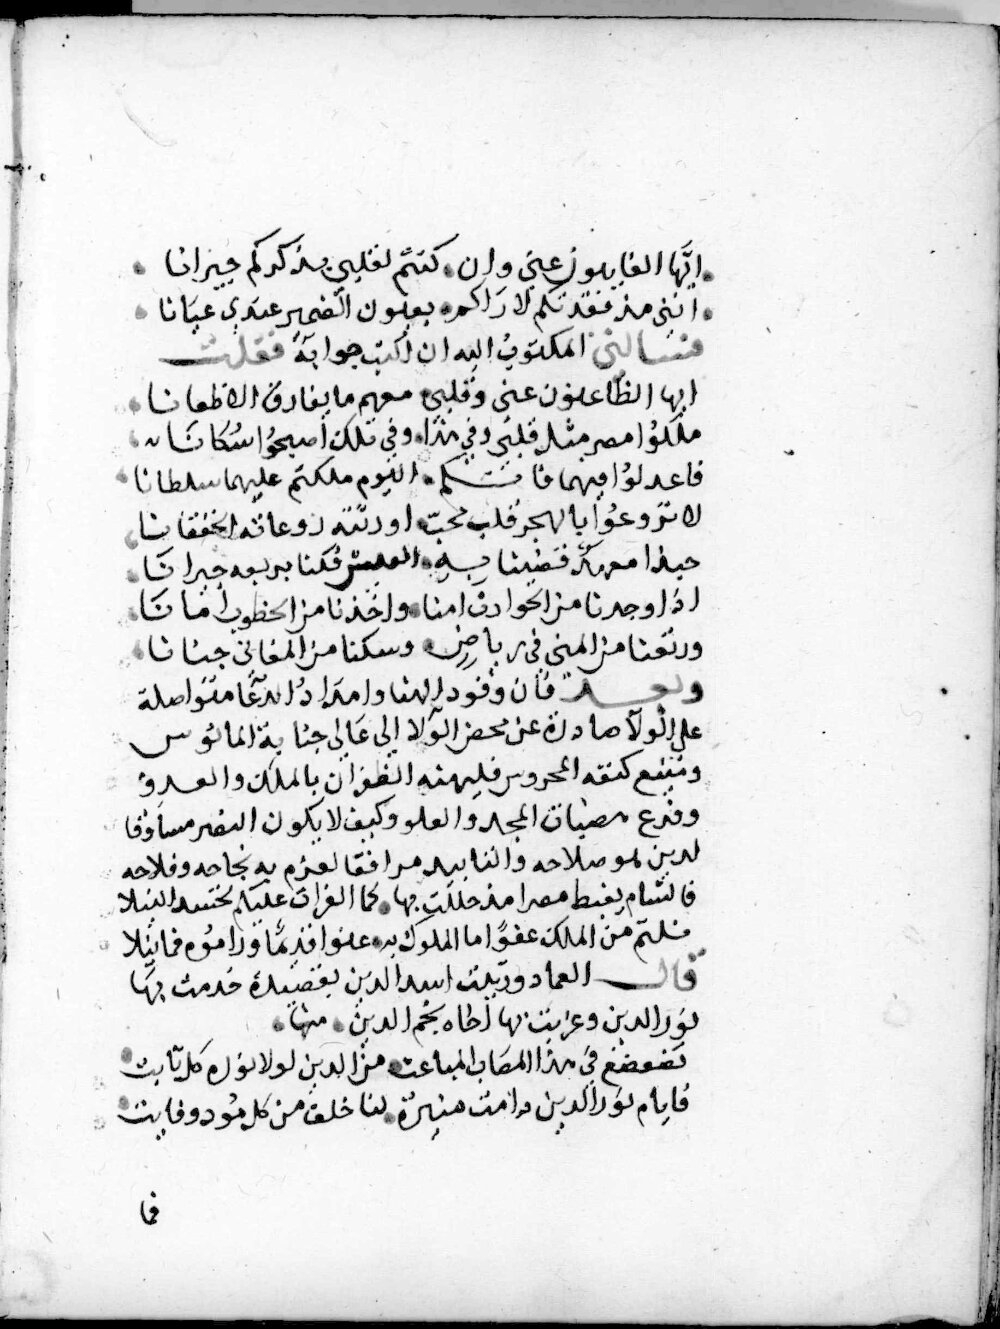 ايها الغايبون عني وان كنتم لقلبي بذكركم جيرانا
انني مذ فقدتكم لا راكم بعيون الضمير عندي عيانا
فسالني المكتوب اليه ان اكتب جوابه فقلت
ايها الظاعنون عني وقلبي معهم ما يفارق الاظعانا
ملكوا مصر مثل قلبي وفي هذا وفي تلك اصبحوا سكانا
فاعدلوا فيهما فا نكم اليوم ملكتم عليهما سلطانا
لا تروعوا بالهجر قلب محب اورثته روعاته الخفقانا
حبذا معهد قضينا به العيش فكنا بربعه جيرانا
اذا وجدنا من الحوادث امنا واخذنا من الخطوب امانا
ورتعنا من المني في رياض وسكنا من المغاني جنانا
وبعد فان وفود الهنا وامداد الدعا متواصلة
علي الولا صادرة عن محض الولا الي عالي جنابه المانوس
ومنيع كنفه المحروس فليهنه الظفران بالملك والعدو
وفرع هضبات المجد والعلو وكيف لا يكون النصر مساوقا
لدين هو صلاحه والتاييد مرافقا لعزم به نجاحه وفلاحه
فالشام يغبط مصرا مذ حللت بها كما الفرات عليكم يحسد النيلا
نلتم من الملك عفوا ما الملوك به عنوا قديما وراموه فما نيلا
قال العماد ورثيت اسد الدين بقصيدة خدمت بها
نور الدين وعزيت بها اخاه نجم الدين منها
تضعضع في هذا المصاب المباغت من الدين لولا نوره كل ثابت
فايام نور الدين دامت منيرة لنا خلف من كل مود وفايت
فما